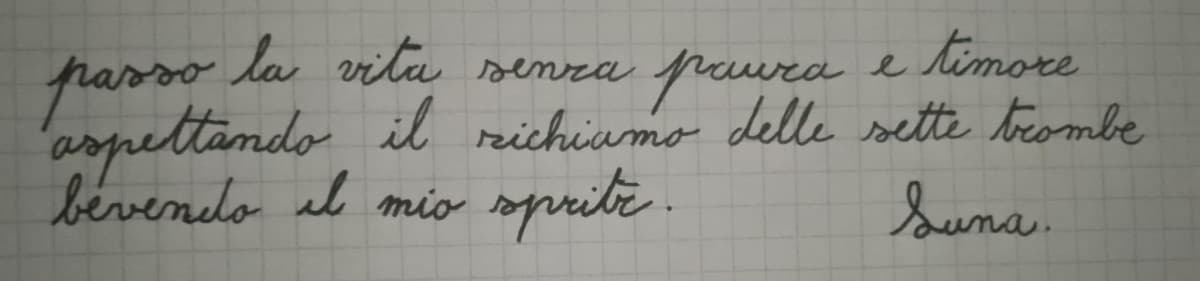 passo la vita senza paura e timore
aspettando il richiamo delle sette trombe
bevendo il mio spritz.
Suna.